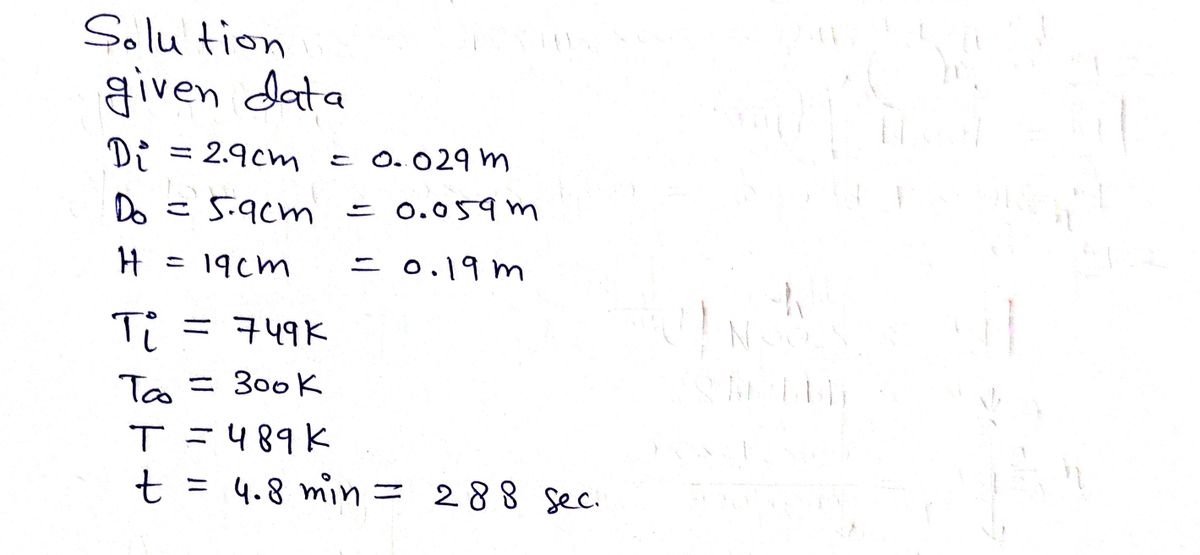 Solution
given data
Di = 2.9cm = 0.029m
Do = 5.9cm = 0.059m
H = 19cm = 0.19m
Ti = 749K
T∞ = 300K
T = 489K
t = 4.8 min = 288 sec.